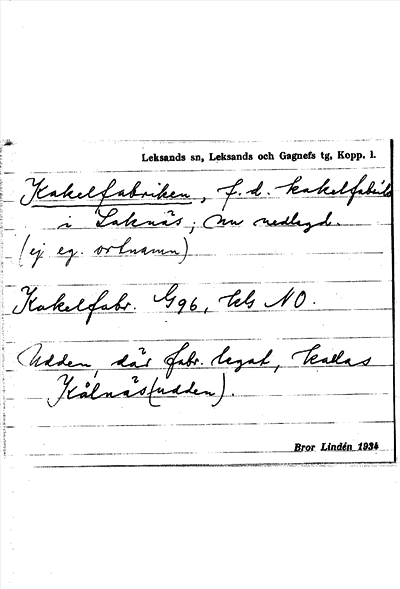 Leksands sn, Leksands och Gagnefs tg, Kopp. l.
Kakelfabriken, f.d. kakelfabrik
i Laknäs; nu nedlagd.
(ej eg. ortnamn)
Kakelfabr. G96, kls NO.
Udden, där fabr. legat, kallas
Kålnäs(udden).
Bror Lindén 1934